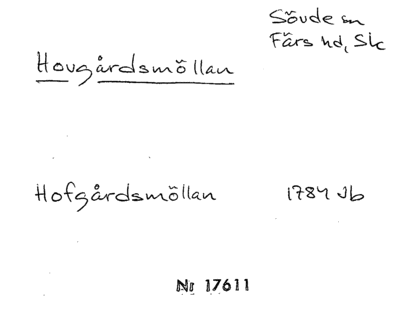 Sövde sn
Färs hd, Sk
Hovgårdsmöllan
Hofgårdsmöllan 1784 Jb
Nr 17611